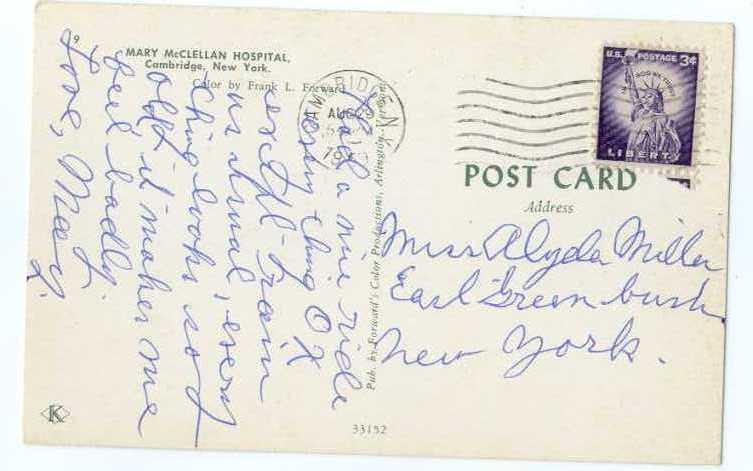 9
MARY McCLELLAN HOSPITAL,
Cambridge, New York.
Color by Frank L. Forward
Had a nice ride
Every thing OK
except - rain
as usual, every
thing looks so
old it makes me
feel badly.
Love, May.
CAMBRIDGE N.Y.
AUG 29
Pub. by Forward's Color Productions, Arlington, Vermont
U.S. POSTAGE 3¢
IN GOD WE TRUST
LIBERTY
POST CARD
Address
Miss Alyda Miller
East Greenbush
New York.
K
33152